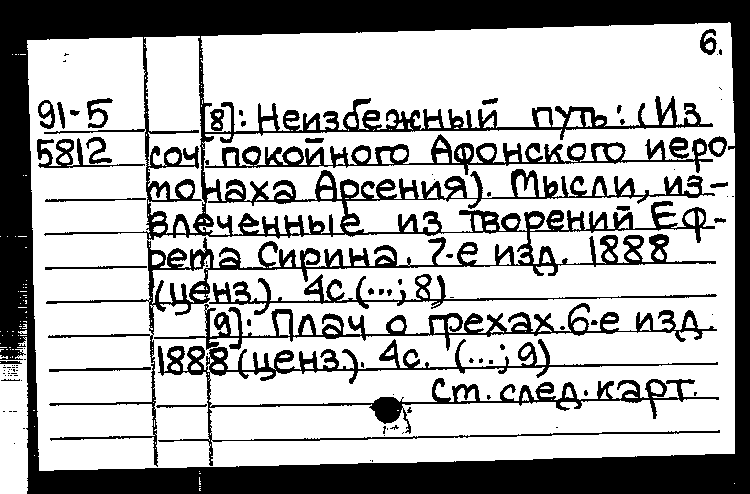 6.
91-5 [8]: Неизбежный путь: (Из
5812 соч. покойного Афонского иеро-
монаха Арсения). Мысли, из-
влеченные из творений Еф-
рема Сирина. 7-е изд. 1888
(ценз.). 4с. (...; 8)
[9]: Плач о грехах. 6-е изд.
1888 (ценз.). 4с. (...; 9)
См. след. карт.